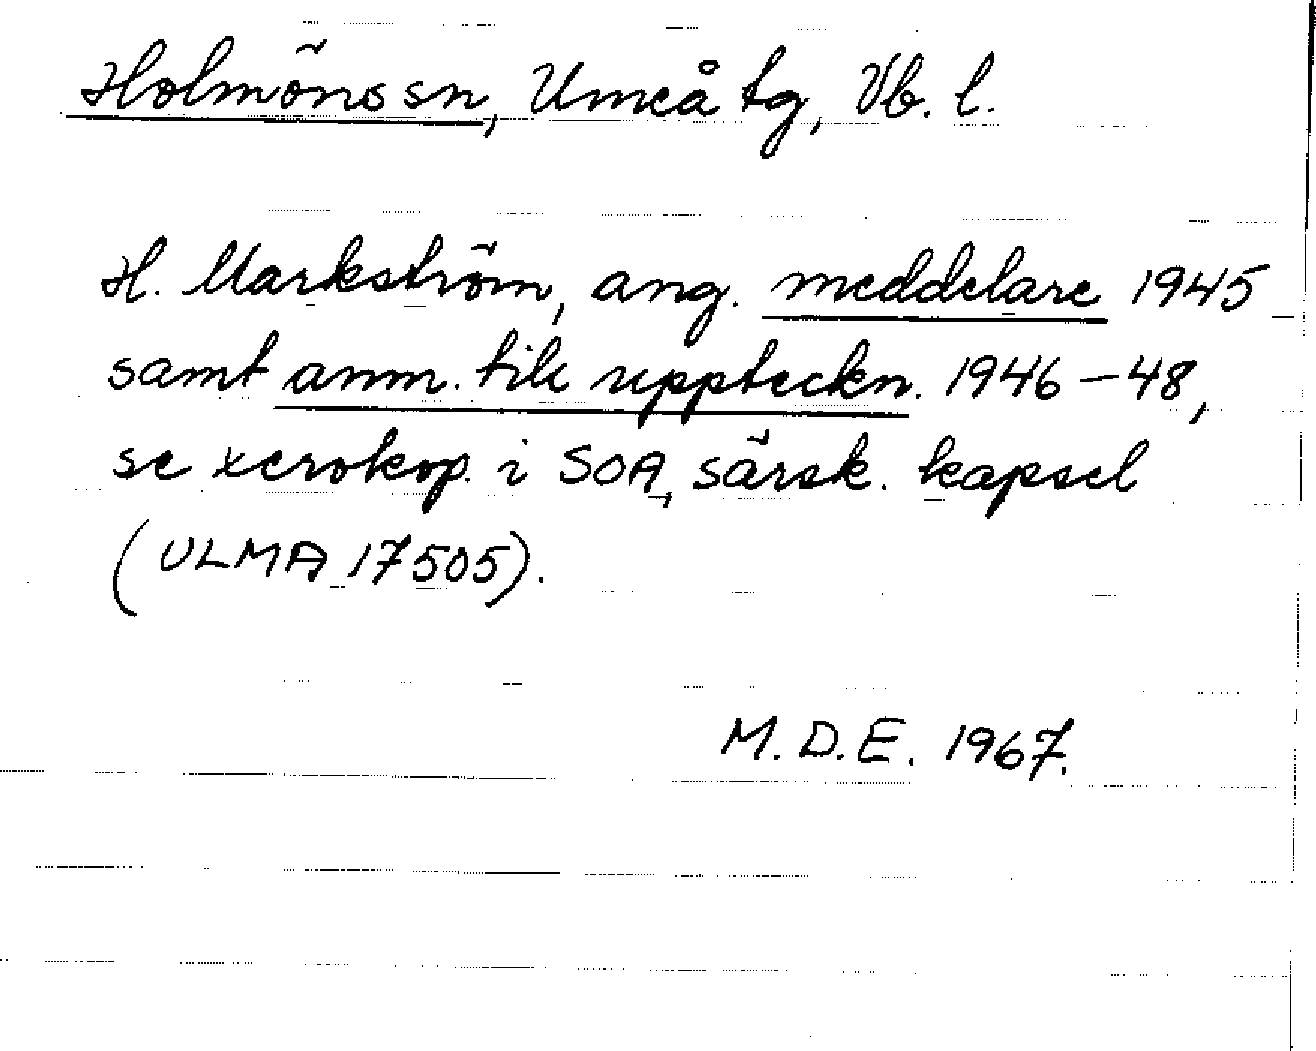 Holmöns sn, Umeå tg, Vb. l.
H. Markström, ang. meddelare 1945
samt anm. till uppteckn. 1946-48,
se xerokop. i SOA, särsk. kapsel
(ULMA 17505).
M.D.E. 1967.